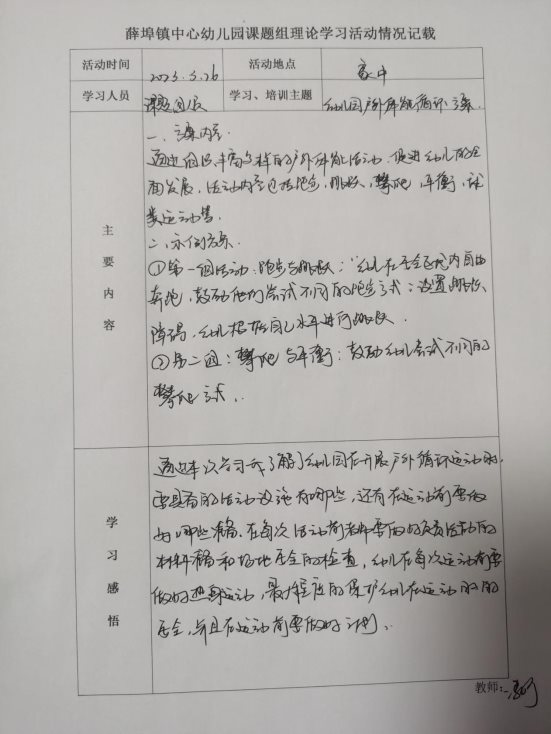 薛埠镇中心幼儿园课题组理论学习活动情况记载
活动时间 2023.5.26 活动地点 家中
学习人员 课题组成员 学习、培训主题 幼儿园户外体能循环方案.
主要内容
一、方案内容.
通过组织丰富多样的户外体能活动,促进幼儿的全
面发展,活动内容包括跑步,跳跃,攀爬,平衡,球
类运动等.
二、示例方案.
①第一组活动:跑步与跳跃:“幼儿在安全区域内自由
奔跑,鼓励他们尝试不同的跑步方式;设置跳跃
障碍,幼儿根据自己水平进行跳跃.
②第二组:攀爬与平衡:鼓励幼儿尝试不同的
攀爬方式..
学习感悟
通过本次学习我了解了幼儿园在开展户外循环运动时,
要具有的活动设施有哪些,还有在运动前要做
好哪些准备.在每次活动前老师要做好负责活动的
材料准备和场地安全的检查,幼儿在每次运动前要
做好热身运动,最大程度的保护幼儿在运动时的
安全,并且在运动前要做好计划.
教师: